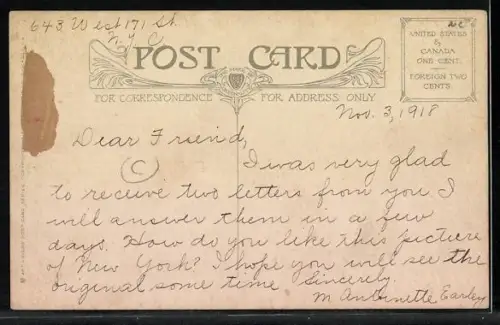 643 West 171 St.
N.Y.C.
N.C.
POST CARD
UNITED STATES
&
CANADA
ONE CENT.
FOREIGN TWO
CENTS
FOR CORRESPONDENCE
FOR ADDRESS ONLY
Nov. 3, 1918
Dear Friend,
C
I was very glad
to receive two letters from you I
will answer them in a few
days. How do you like this picture
of New York? I hope you will see the
original some time Sincerely.
M Antoinette Earley